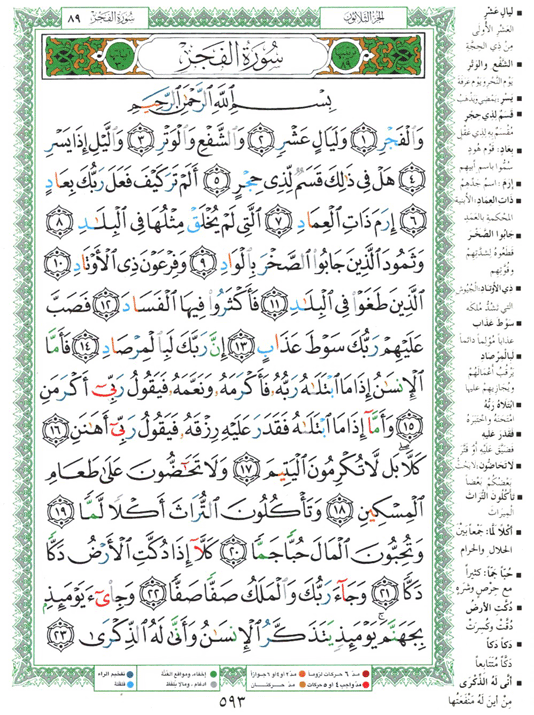 سُورَةُ الفَجْرِ ٨٩
الجُزْءُ الثَّلَاثُونَ
سُورَةُ الفَجْرِ
بِسْمِ ٱللَّهِ ٱلرَّحْمَٰنِ ٱلرَّحِيمِ
وَٱلْفَجْرِ ١ وَلَيَالٍ عَشْرٍ ٢ وَٱلشَّفْعِ وَٱلْوَتْرِ ٣ وَٱلَّيْلِ إِذَا يَسْرِ
٤ هَلْ فِى ذَٰلِكَ قَسَمٌ لِّذِى حِجْرٍ ٥ أَلَمْ تَرَ كَيْفَ فَعَلَ رَبُّكَ بِعَادٍ
٦ إِرَمَ ذَاتِ ٱلْعِمَادِ ٧ ٱلَّتِى لَمْ يُخْلَقْ مِثْلُهَا فِى ٱلْبِلَٰدِ ٨
وَثَمُودَ ٱلَّذِينَ جَابُوا۟ ٱلصَّخْرَ بِٱلْوَادِ ٩ وَفِرْعَوْنَ ذِى ٱلْأَوْتَادِ ١٠
ٱلَّذِينَ طَغَوْا۟ فِى ٱلْبِلَٰدِ ١١ فَأَكْثَرُوا۟ فِيهَا ٱلْفَسَادَ ١٢ فَصَبَّ
عَلَيْهِمْ رَبُّكَ سَوْطَ عَذَابٍ ١٣ إِنَّ رَبَّكَ لَبِٱلْمِرْصَادِ ١٤ فَأَمَّا
ٱلْإِنسَٰنُ إِذَا مَا ٱبْتَلَىٰهُ رَبُّهُۥ فَأَكْرَمَهُۥ وَنَعَّمَهُۥ فَيَقُولُ رَبِّىٓ أَكْرَمَنِ
١٥ وَأَمَّآ إِذَا مَا ٱبْتَلَىٰهُ فَقَدَرَ عَلَيْهِ رِزْقَهُۥ فَيَقُولُ رَبِّىٓ أَهَٰنَنِ ١٦
كَلَّا ۖ بَل لَّا تُكْرِمُونَ ٱلْيَتِيمَ ١٧ وَلَا تَحَٰٓضُّونَ عَلَىٰ طَعَامِ
ٱلْمِسْكِينِ ١٨ وَتَأْكُلُونَ ٱلتُّرَاثَ أَكْلًا لَّمًّا ١٩
وَتُحِبُّونَ ٱلْمَالَ حُبًّا جَمًّا ٢٠ كَلَّآ إِذَا دُكَّتِ ٱلْأَرْضُ دَكًّا
دَكًّا ٢١ وَجَآءَ رَبُّكَ وَٱلْمَلَكُ صَفًّا صَفًّا ٢٢ وَجِا۟ىٓءَ يَوْمَئِذٍۭ
بِجَهَنَّمَ ۚ يَوْمَئِذٍ يَتَذَكَّرُ ٱلْإِنسَٰنُ وَأَنَّىٰ لَهُ ٱلذِّكْرَىٰ ٢٣
لَيَالٍ عَشْرٍ
العَشْرِ الأُولَى
مِنْ ذِي الحِجَّةِ
الشَّفْعِ وَالوَتْرِ
يَوْمِ النَّحْرِ وَيَوْمِ عَرَفَةَ
يَسْرِ: يَمْضِي وَيَذْهَبُ
قَسَمٌ لِذِي حِجْرٍ
مُقْسَمٌ بِهِ لِذِي عَقْلٍ
بِعَادٍ: قَوْمِ هُودٍ
سُمُّوا بِاسْمِ أَبِيهِمْ
إِرَمَ: اسْمُ جَدِّهِمْ
ذَاتِ العِمَادِ: الأَبْنِيَةِ
المُحْكَمَةِ بِالعَمَدِ
جَابُوا الصَّخْرَ
قَطَعُوهُ لِشِدَّتِهِمْ
وَقُوَّتِهِمْ
ذِي الأَوْتَادِ: الجُيُوشِ
الَّتِي تَشُدُّ مُلْكَهُ
سَوْطَ عَذَابٍ
عَذَاباً مُؤْلِماً دَائِماً
لَبِالمِرْصَادِ
يَرْقُبُ أَعْمَالَهُمْ
وَيُجَازِيهِمْ عَلَيْهَا
ابْتَلَاهُ رَبُّهُ
امْتَحَنَهُ وَاخْتَبَرَهُ
فَقَدَرَ عَلَيْهِ
فَضَيَّقَ عَلَيْهِ أَوْ قَتَّرَ
لَا تَحَاضُّونَ: لَا يَحُثُّ
بَعْضُكُمْ بَعْضاً
تَأْكُلُونَ التُّرَاثَ
المِيرَاثَ
أَكْلاً لَمّاً: جَمْعاً بَيْنَ
الحَلَالِ وَالحَرَامِ
حُبّاً جَمّاً: كَثِيراً
مَعَ حِرْصٍ وَشَرَهٍ
دُكَّتِ الأَرْضُ
دُقَّتْ وَكُسِرَتْ
دَكّاً دَكّاً
دَكّاً مُتَتَابِعاً
أَنَّى لَهُ الذِّكْرَى
مِنْ أَيْنَ لَهُ مَنْفَعَتُهَا
مدّ ٦ حركات لزوماً
مدّ ٢ أو ٤ أو ٦ جوازاً
إخفاء، ومواقع الغنّة
تفخيم الراء
مدّ واجب ٤ أو ٥ حركات
مدّ حركتان
ادغام، وما لا يلفظ
قلقلة
٥٩٣